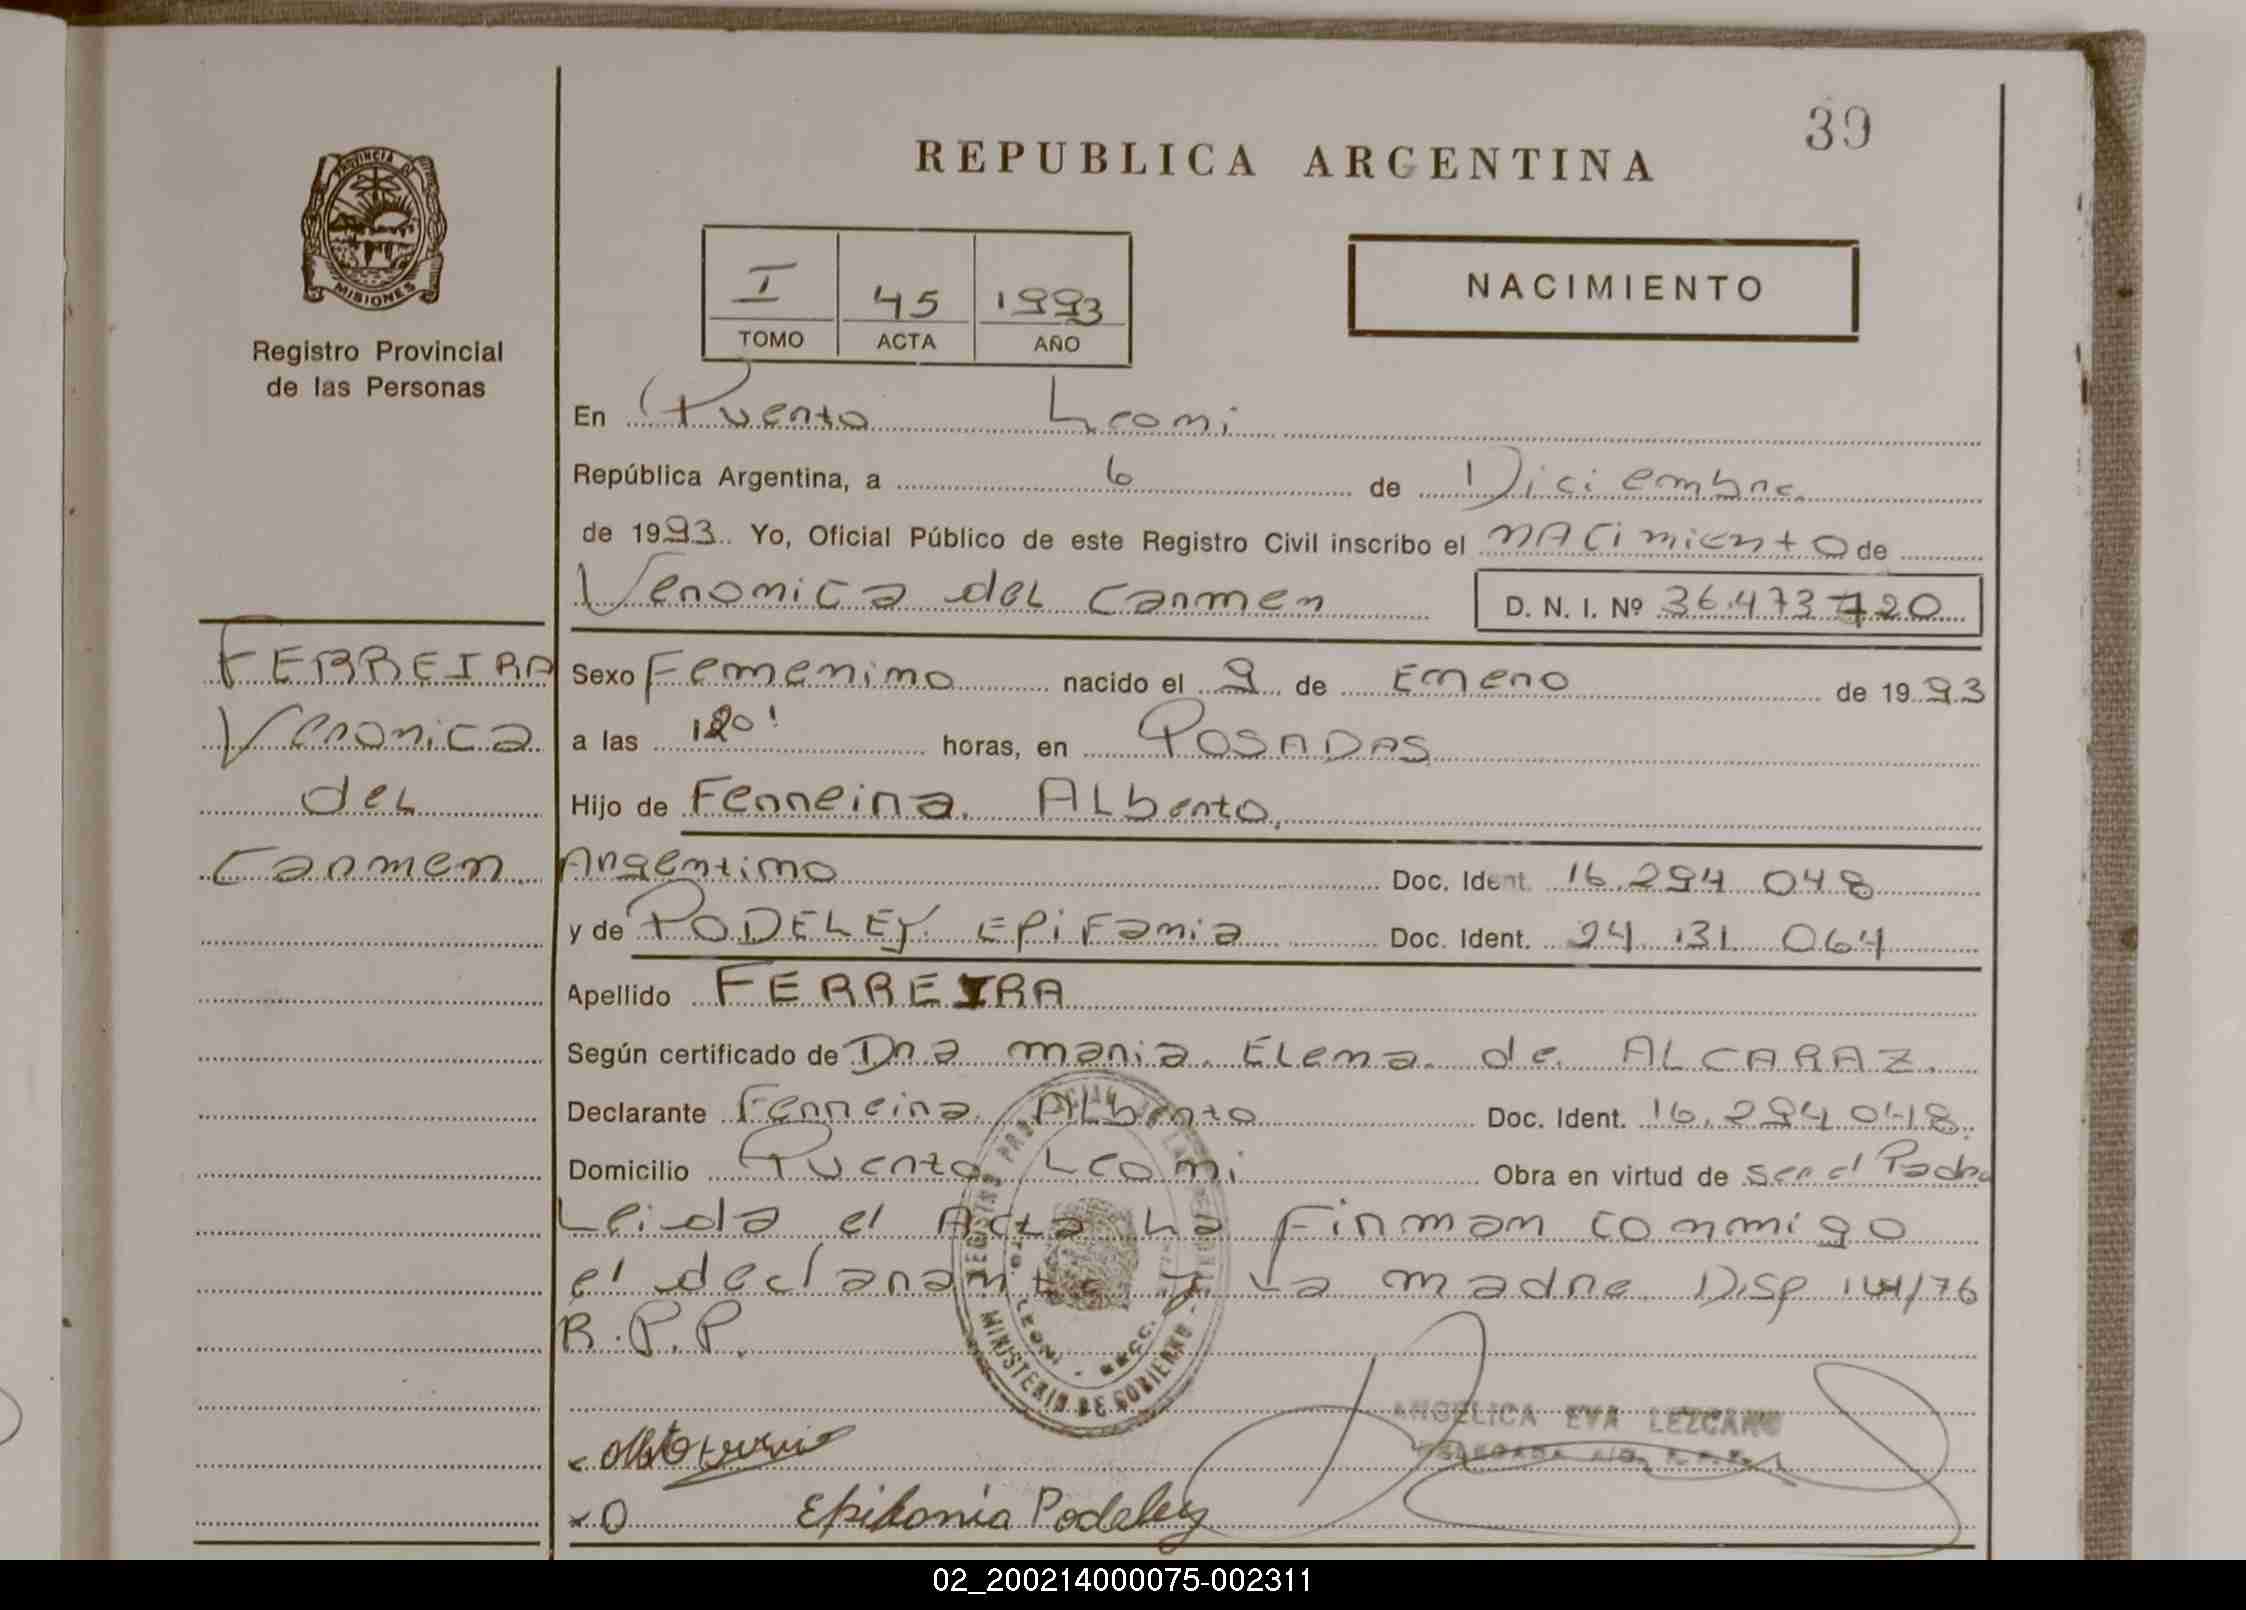 39
REPUBLICA ARGENTINA
PROVINCIA DE
MISIONES
Registro Provincial
de las Personas
I 45 1993
TOMO ACTA AÑO
NACIMIENTO
En Puerto Leoni
República Argentina, a 6 de Diciembre
de 1993. Yo, Oficial Público de este Registro Civil inscribo el nacimiento de
Veronica del Carmen D. N. I. Nº 36.473.720
FERREIRA
Veronica
del
Carmen.
Sexo Femenino nacido el 9 de Enero de 1993
a las horas, en POSADAS
Hijo de Ferreira. Alberto.
Argentino Doc. Ident. 16.294 048
y de PODELEY Epifania Doc. Ident. 24 131 064
Apellido FERREIRA
Según certificado de Dra maria. Elena. de ALCARAZ.
Declarante Ferreira. Alberto Doc. Ident. 16.294 048.
Domicilio Puerto Leoni Obra en virtud de ser el Padre
Leida el Acta la firman conmigo
el declarante y la madre Disp 144/76
R.P.P.
REGISTRO PROVINCIAL DE LAS PERSONAS
PTO. LEONI - SECC.
MINISTERIO DE GOBIERNO
ANGELICA EVA LEZCANO
Epifania Podeley
02_200214000075-002311